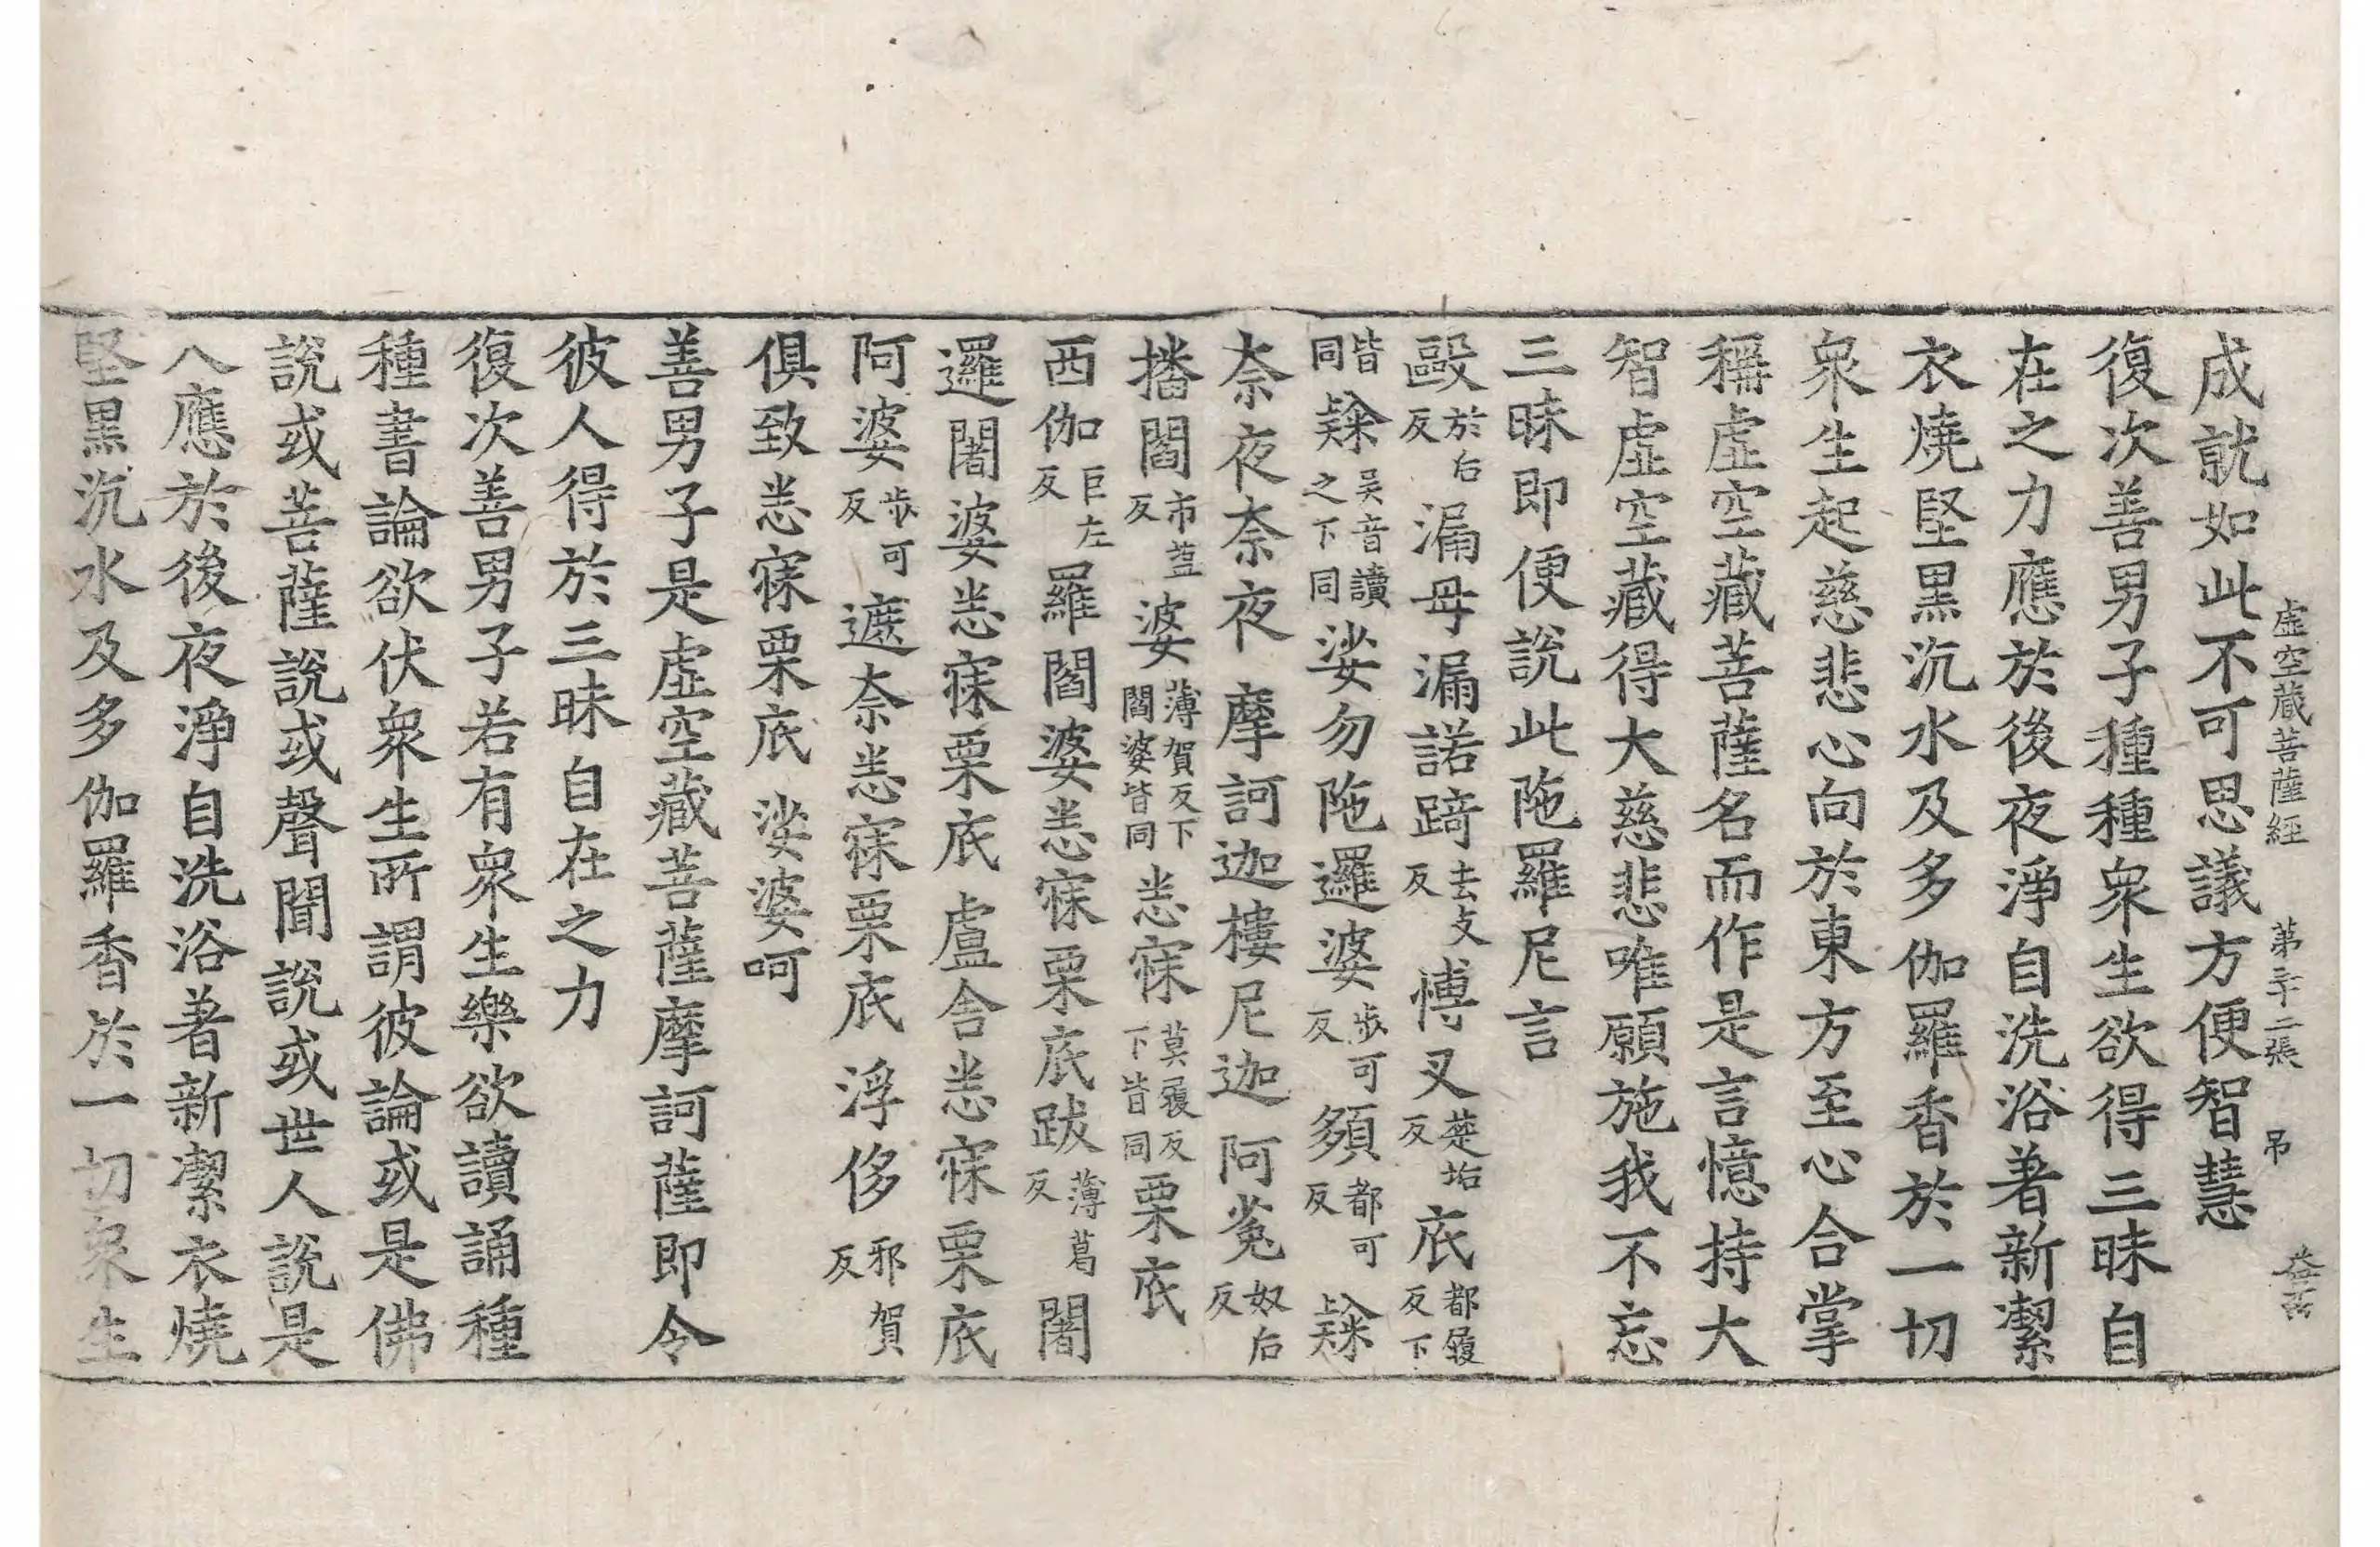 虛空藏菩薩經 第二十二張 弔
成就如此不可思議方便智慧
復次善男子種種衆生欲得三昧自
在之力應於後夜淨自洗浴著新潔
衣燒堅黑沉水及多伽羅香於一切
衆生起慈悲心向於東方至心合掌
稱虛空藏菩薩名而作是言憶持大
智虛空藏得大慈悲唯願施我不忘
三昧即便說此陁羅尼言
毆於后反漏毋漏諾踦去攴反博叉楚垢反底都履反下
皆同吳音讀之下同娑勿陁邏婆步可反都可反
奈夜奈夜 摩訶迦樓尼迦 阿㝹奴后反
播閻市益反婆薄賀反下閻婆皆同恙寐莫履反下皆同栗底
西伽巨左反羅閻婆恙寐栗底跋薄葛反闍
邏闍婆恙寐栗底 盧舍恙寐栗底
阿婆步可反遮奈恙寐栗底 浮侈邪賀反
俱致恙寐栗底 娑婆呵
善男子是虛空藏菩薩摩訶薩即令
彼人得於三昧自在之力
復次善男子若有衆生樂欲讀誦種
種書論欲伏衆生所謂彼論或是佛
說或菩薩說或聲聞說或世人說是
人應於後夜淨自洗浴著新潔衣燒
堅黑沉水及多伽羅香於一切衆生